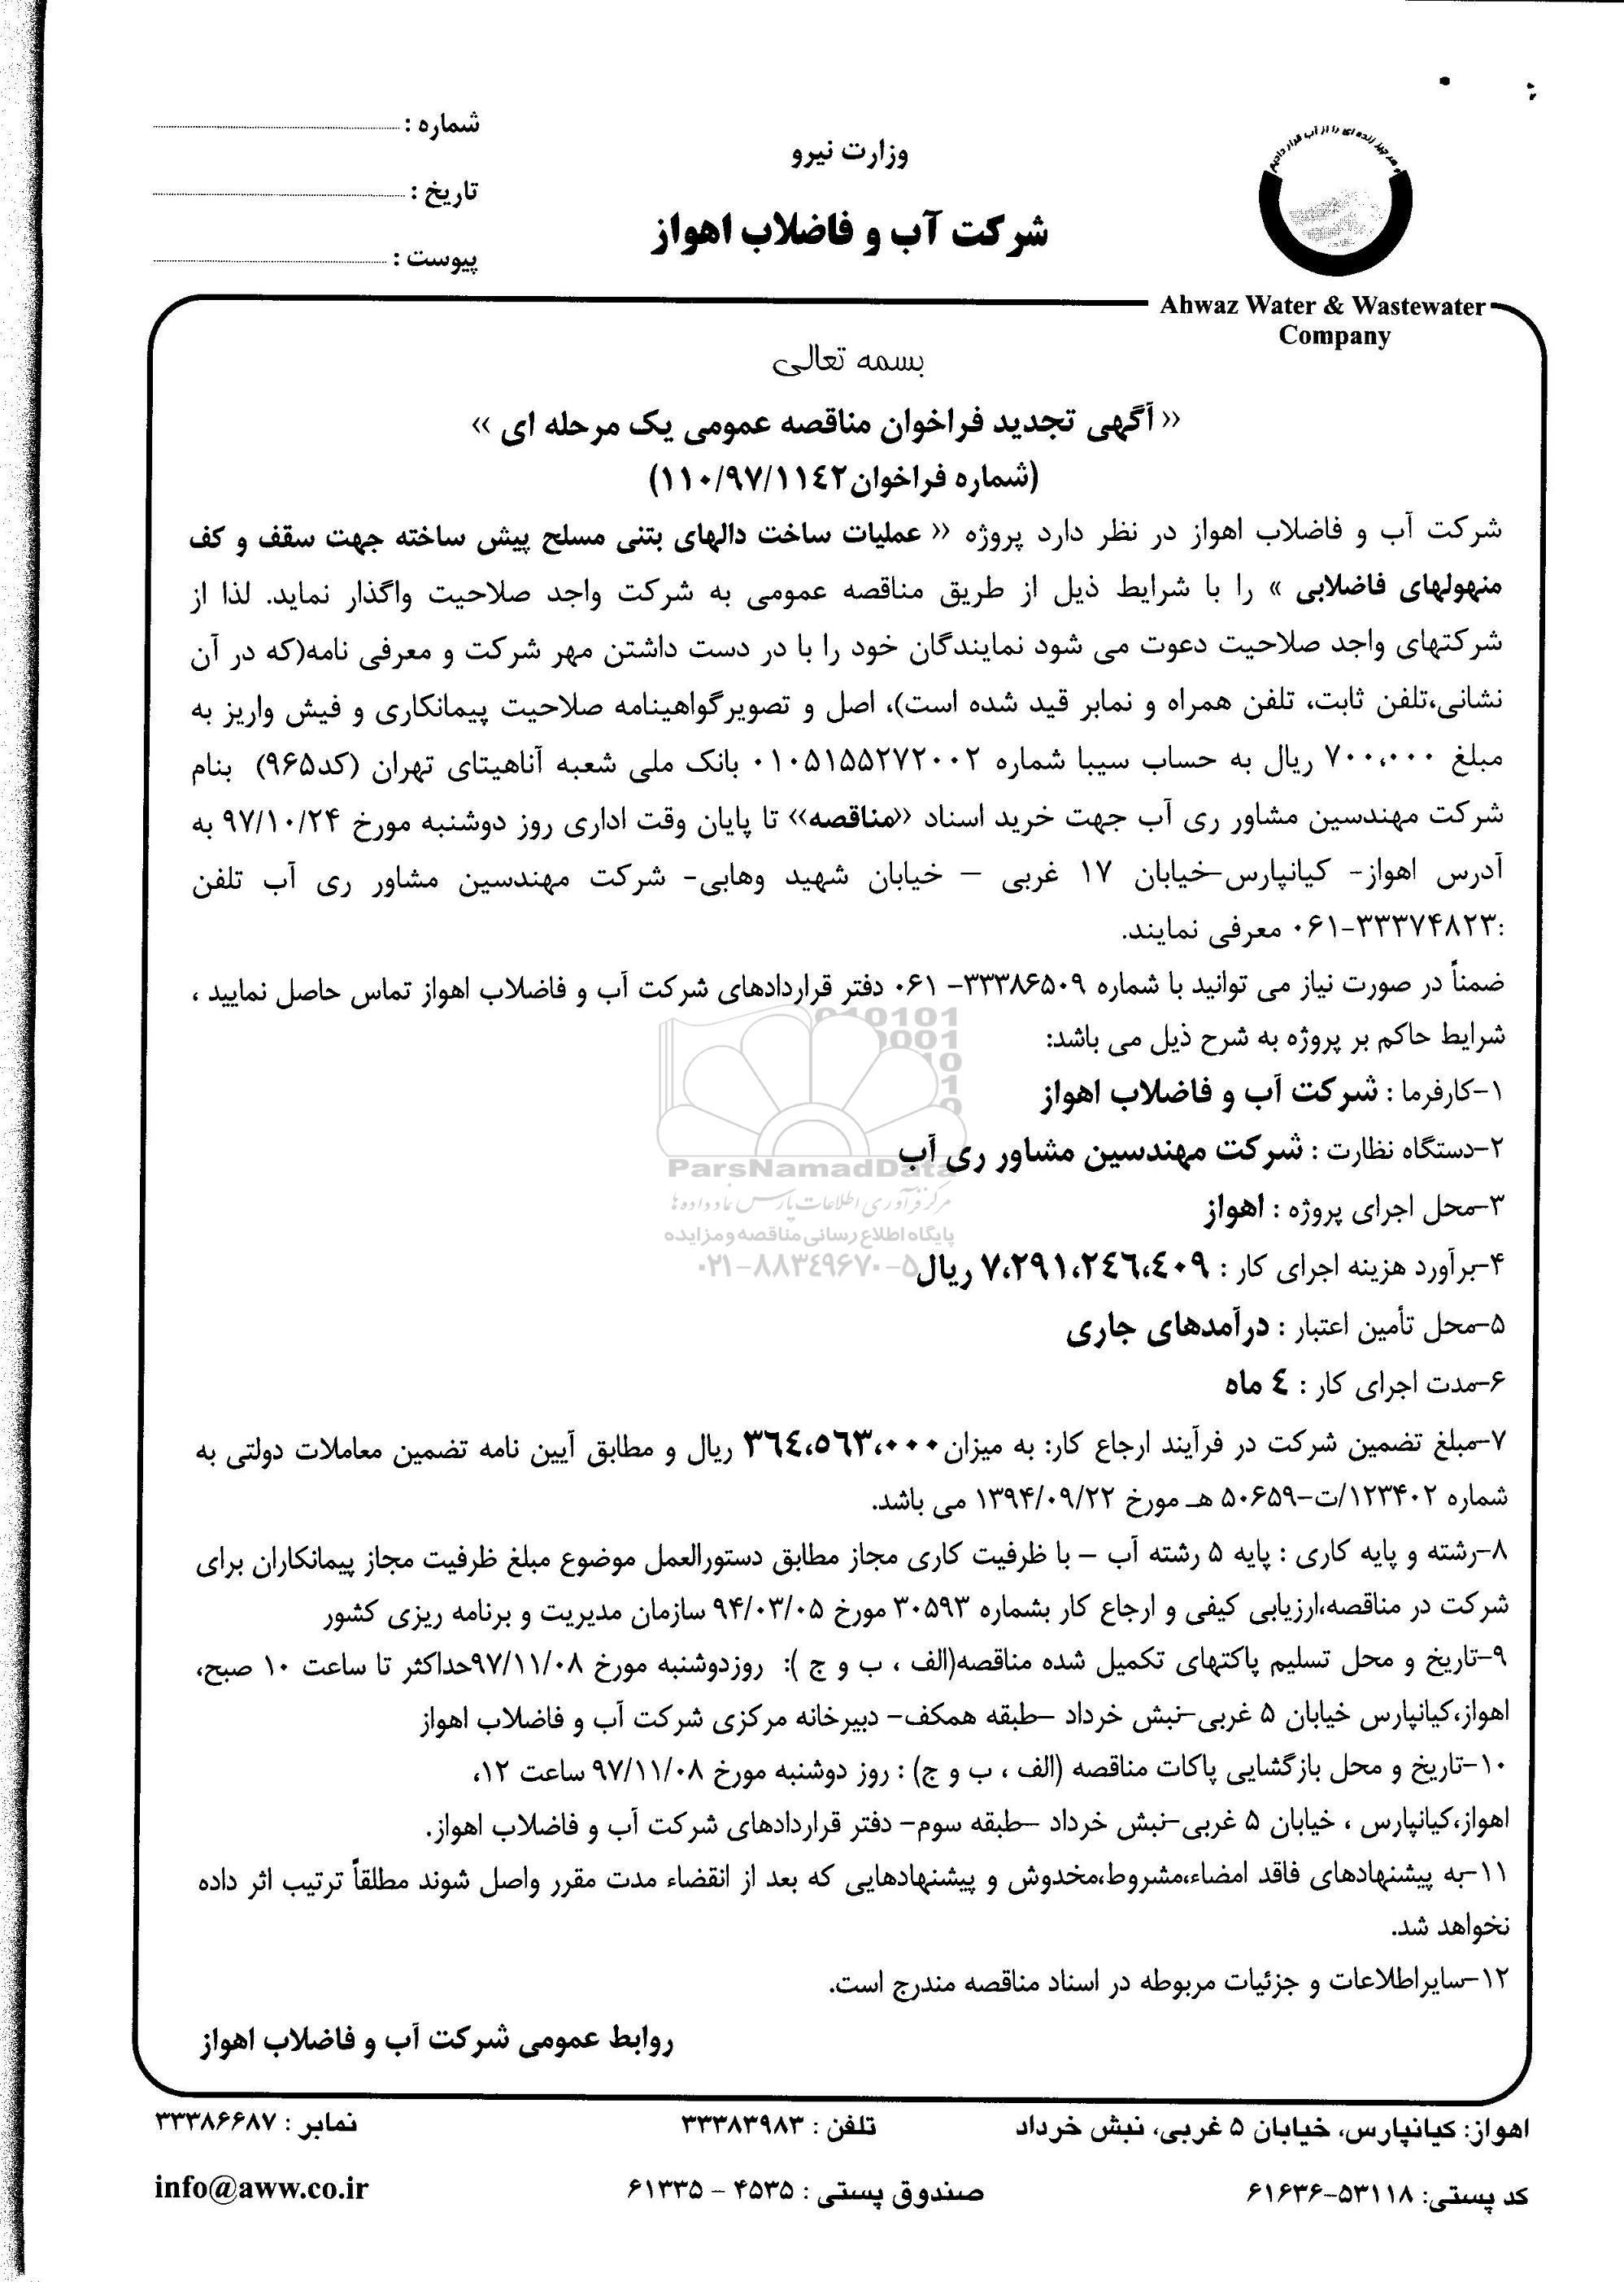 شماره :
تاریخ :
پیوست :
وزارت نیرو
شرکت آب و فاضلاب اهواز
Ahwaz Water & Wastewater
Company
بسمه تعالی
«آگهی تجدید فراخوان مناقصه عمومی یک مرحله ای »
(شماره فراخوان۱۱۰/۹۷/۱۱٤۲)
شرکت آب و فاضلاب اهواز در نظر دارد پروژه « عملیات ساخت دالهای بتنی مسلح پیش ساخته جهت سقف و کف
منهولهای فاضلابی » را با شرایط ذیل از طریق مناقصه عمومی به شرکت واجد صلاحیت واگذار نماید. لذا از
شرکتهای واجد صلاحیت دعوت می شود نمایندگان خود را با در دست داشتن مهر شرکت و معرفی نامه(که در آن
نشانی،تلفن ثابت، تلفن همراه و نمابر قید شده است)، اصل و تصویرگواهینامه صلاحیت پیمانکاری و فیش واریز به
مبلغ ۷۰۰،۰۰۰ ریال به حساب سیبا شماره ۰۱۰۵۱۵۵۲۷۲۰۰۲ بانک ملی شعبه آناهیتای تهران (کد۹۶۵) بنام
شرکت مهندسین مشاور ری آب جهت خرید اسناد «مناقصه» تا پایان وقت اداری روز دوشنبه مورخ ۹۷/۱۰/۲۴ به
آدرس اهواز- کیانپارس-خیابان ۱۷ غربی – خیابان شهید وهابی- شرکت مهندسین مشاور ری آب تلفن
:۰۶۱-۳۳۳۷۴۸۲۳ معرفی نمایند.
ضمناً در صورت نیاز می توانید با شماره ۳۳۳۸۶۵۰۹- ۰۶۱ دفتر قراردادهای شرکت آب و فاضلاب اهواز تماس حاصل نمایید ،
شرایط حاکم بر پروژه به شرح ذیل می باشد:
۱-کارفرما : شرکت آب و فاضلاب اهواز
۲-دستگاه نظارت : شرکت مهندسین مشاور ری آب
ParsNamadData
مرکز فرآوری اطلاعات پارس نماد داده ها
۳-محل اجرای پروژه : اهواز
پایگاه اطلاع رسانی مناقصه و مزایده
۰۲۱-۸۸۳٤۹۶۷۰-۵
۴-برآورد هزینه اجرای کار : ۷،۲۹۱،۲٤٦،٤۰۹ ریال
۵-محل تأمین اعتبار : درآمدهای جاری
۶-مدت اجرای کار : ٤ ماه
۷-مبلغ تضمین شرکت در فرآیند ارجاع کار: به میزان۳٦٤،٥٦۳،۰۰۰ ریال و مطابق آیین نامه تضمین معاملات دولتی به
شماره ۱۲۳۴۰۲/ت-۵۰۶۵۹ هـ مورخ ۱۳۹۴/۰۹/۲۲ می باشد.
۸-رشته و پایه کاری : پایه ۵ رشته آب – با ظرفیت کاری مجاز مطابق دستورالعمل موضوع مبلغ ظرفیت مجاز پیمانکاران برای
شرکت در مناقصه،ارزیابی کیفی و ارجاع کار بشماره ۳۰۵۹۳ مورخ ۹۴/۰۳/۰۵ سازمان مدیریت و برنامه ریزی کشور
۹-تاریخ و محل تسلیم پاکتهای تکمیل شده مناقصه(الف ، ب و ج ): روزدوشنبه مورخ ۹۷/۱۱/۰۸حداکثر تا ساعت ۱۰ صبح،
اهواز،کیانپارس خیابان ۵ غربی-نبش خرداد –طبقه همکف- دبیرخانه مرکزی شرکت آب و فاضلاب اهواز
۱۰-تاریخ و محل بازگشایی پاکات مناقصه (الف ، ب و ج) : روز دوشنبه مورخ ۹۷/۱۱/۰۸ ساعت ۱۲،
اهواز،کیانپارس ، خیابان ۵ غربی-نبش خرداد –طبقه سوم- دفتر قراردادهای شرکت آب و فاضلاب اهواز.
۱۱-به پیشنهادهای فاقد امضاء،مشروط،مخدوش و پیشنهادهایی که بعد از انقضاء مدت مقرر واصل شوند مطلقاً ترتیب اثر داده
نخواهد شد.
۱۲-سایراطلاعات و جزئیات مربوطه در اسناد مناقصه مندرج است.
روابط عمومی شرکت آب و فاضلاب اهواز
اهواز: کیانپارس، خیابان ۵ غربی، نبش خرداد
تلفن : ۳۳۳۸۳۹۸۳
نمابر : ۳۳۳۸۶۶۸۷
کد پستی: ۶۱۶۳۶-۵۳۱۱۸
صندوق پستی : ۴۵۳۵ - ۶۱۳۳۵
info@aww.co.ir